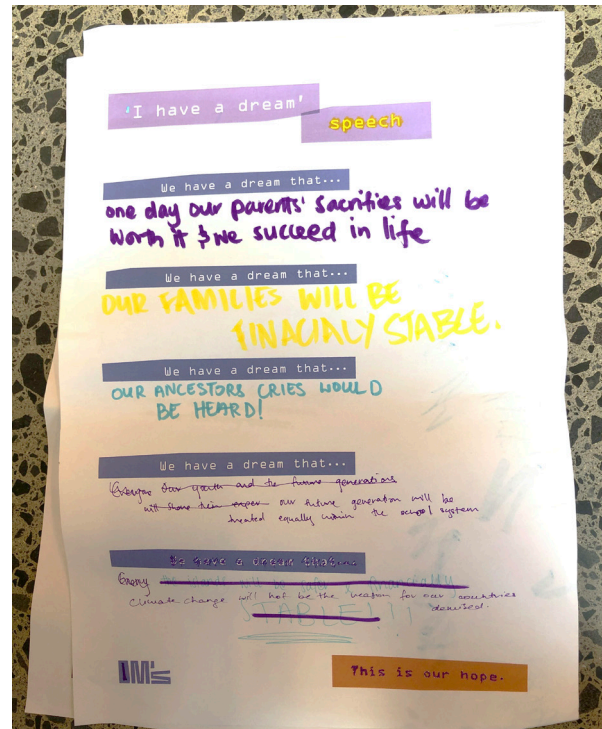 'I have a dream'
speech
We have a dream that...
one day our parents' sacrifies will be
worth it & we succeed in life
We have a dream that...
OUR FAMILIES WILL BE
FINACIALY STABLE.
We have a dream that...
OUR ANCESTORS CRIES WOULD
BE HEARD!
We have a dream that...
our youth and the future generations
will our future generation will be
treated equally within the school system
We have a dream that...
climate change will not be the reason for our countries
demised.
STABLE!!!
IM's
This is our hope.